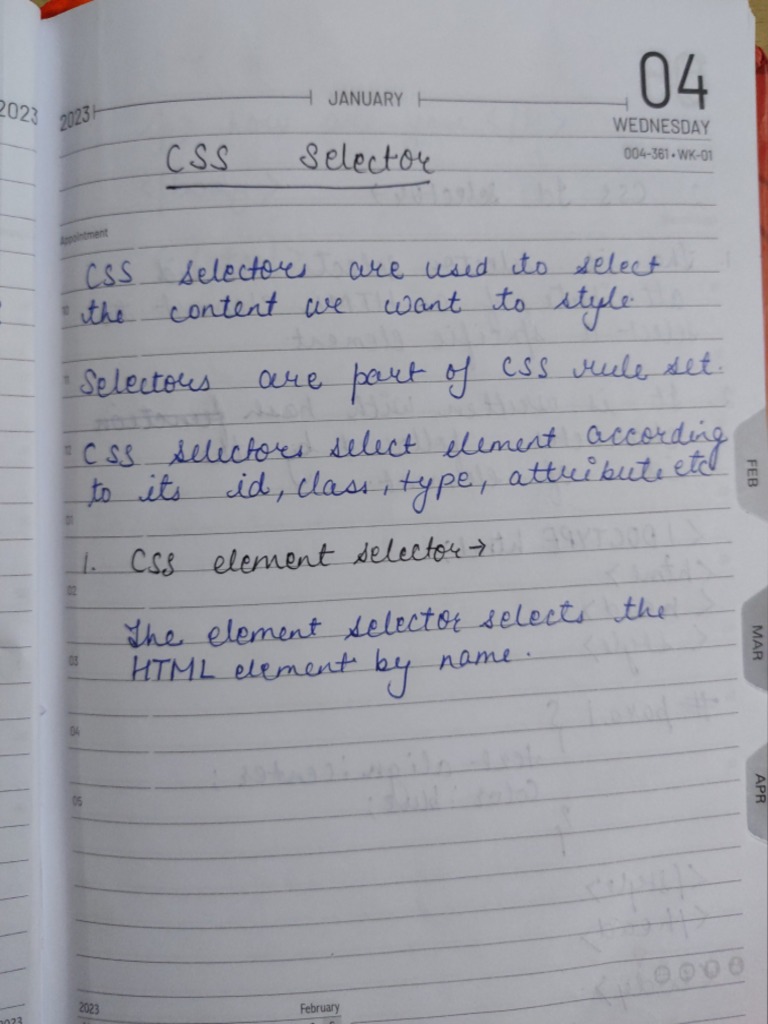 2023
2023
JANUARY
04
WEDNESDAY
004-361 • WK-01
CSS Selector
Appointment
CSS selectors are used to select
10 the content we want to style.
11 Selectors are part of CSS rule set.
12 CSS selectors select element according
to its id, class, type, attribute etc
01
1. CSS element selector →
02
The element selector selects the
03 HTML element by name.
04
05
FEB
MAR
APR
2023
February
2023